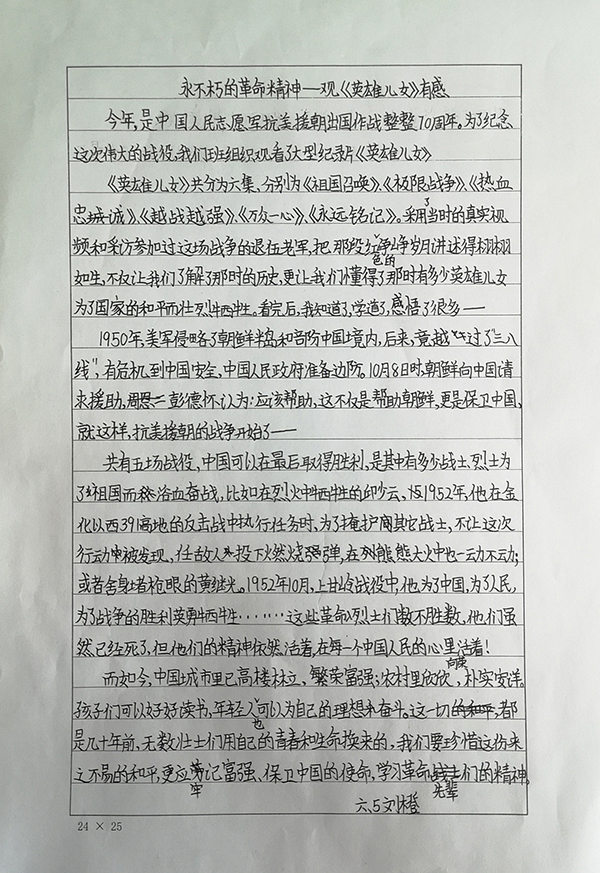 永不朽的革命精神——观《英雄儿女》有感
今年,是中国人民志愿军抗美援朝出国作战整整70周年。为了纪念
这次伟大的战役,我们班组织观看了大型纪录片《英雄儿女》
《英雄儿女》共分为六集,分别为《祖国召唤》、《极限战争》、《热血
忠诚》、《越战越强》、《万众一心》、《永远铭记》。采用了当时的真实视
频和采访参加过这场战争的退伍老军,把那段红色的峥嵘岁月讲述得栩栩
如生,不仅让我们了解了那时的历史,更让我们懂得了那时有多少英雄儿女
为了国家的和平而壮烈牺牲。看完后,我知道了,学道了,感悟了很多——
1950年,美军侵略了朝鲜半岛和部防中国境内,后来,竟越过了“三八
线”,有危机到中国安全,中国人民政府准备边防。10月8日时,朝鲜向中国请
求援助,彭德怀认为:应该帮助,这不仅是帮助朝鲜,更是保卫中国,
就这样,抗美援朝的战争开始了——
共有五场战役、中国可以在最后取得胜利,是其中有多少战士、烈士为
了祖国而浴血奋战,比如在烈火中牺牲的邱少云、1952年,他在金
化以西391高地的反击战中执行任务时,为了掩护其它战士,不让这次
行动被发现,任敌人投下燃烧弹,在熊熊大火中也一动不动;
或者舍身堵枪眼的黄继光。1952年10月,上甘岭战役中,他为了中国,为了人民,
为了战争的胜利英勇牺牲………这些革命烈士们数不胜数,他们虽
然已经死了,但他们的精神依然活着,在每一个中国人民的心里活着!
而如今,中国城市里已高楼林立、繁荣富强;农村里欣欣向荣,朴实安详。
孩子们可以好好读书,年轻人也可以为自己的理想奋斗。这一切,都
是几十年前,无数壮士们用自己的青春和生命换来的,我们要珍惜这份来
之不易的和平,更应牢记富强、保卫中国的使命,学习革命先辈们的精神。
六、5 刘橙
24 × 25